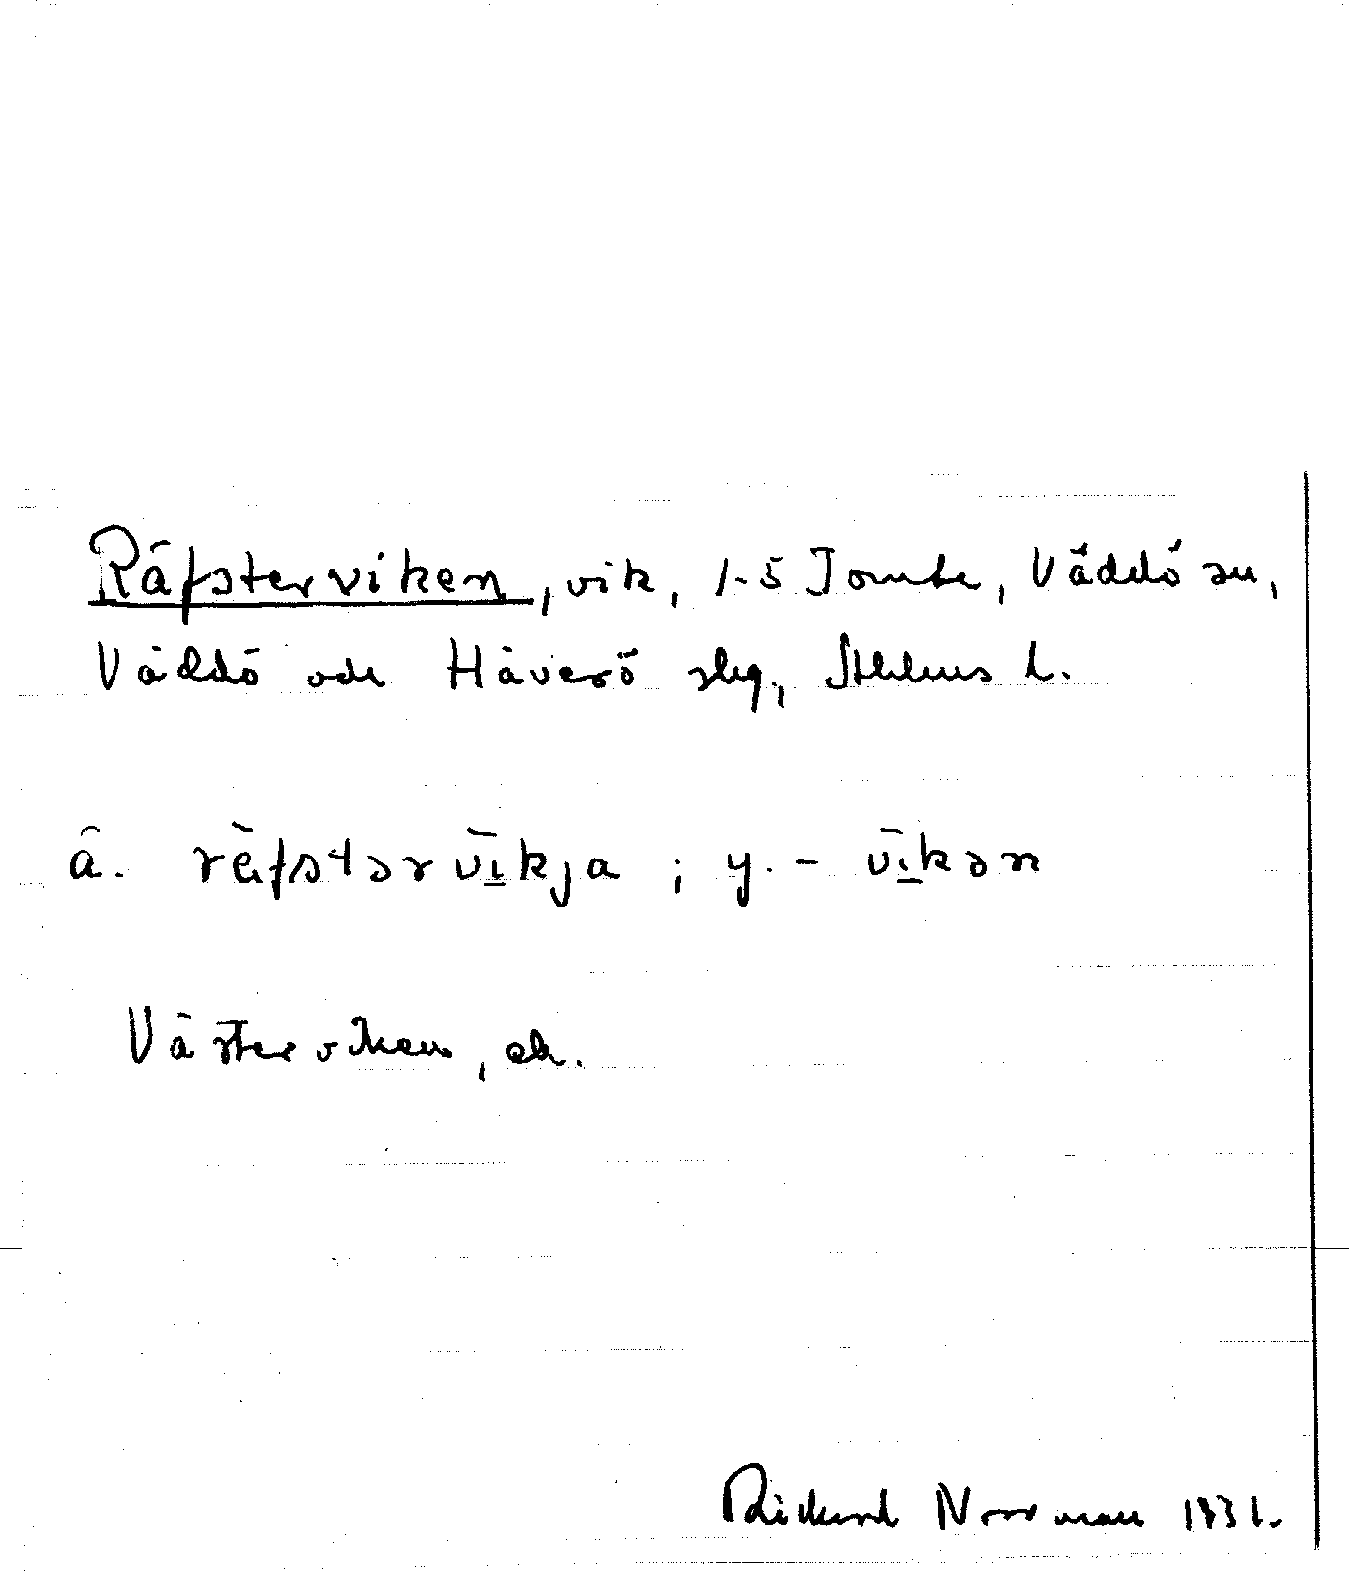 Räfsterviken, vik, 1-5 Tomta, Väddö sn,
Väddö och Häverö slg, Sthlms l.
ä. räfstərvīkja ; y. - vīkən
Västerviken, ek.
Rickard Norrman 1931.